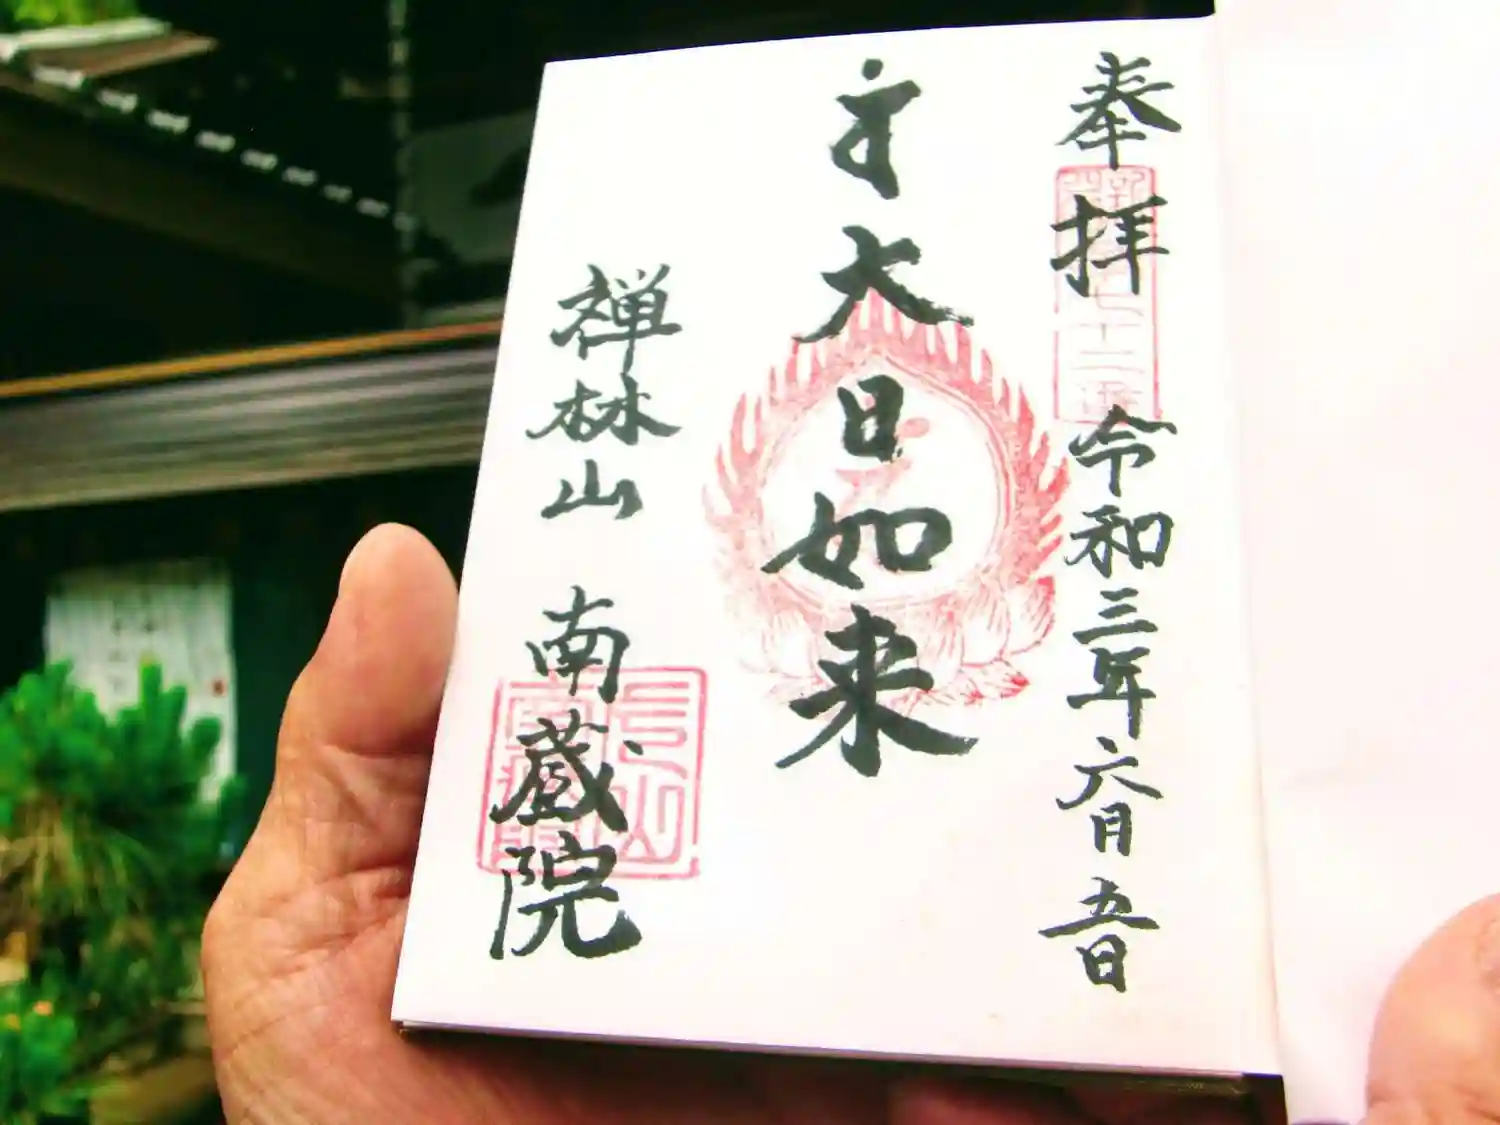 奉拝 令和三年六月五日
大日如来
禅林山 南蔵院